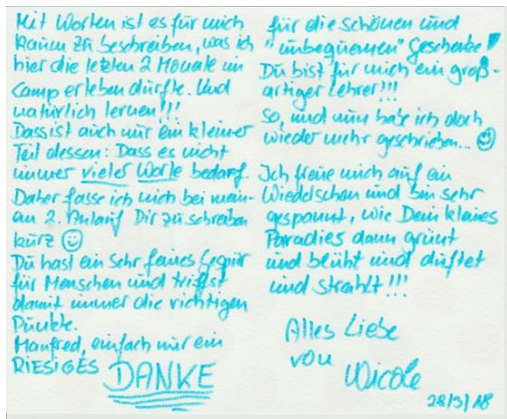 Mit Worten ist es für mich
kaum zu beschreiben, was ich
hier die letzten 2 Monate im
Camp erleben durfte. Und
natürlich lernen!!!
Dass ist auch nur ein kleiner
Teil dessen: Dass es nicht
immer vieler Worte bedarf.
Daher fasse ich mich bei mein-
em 2. Anlauf Dir zu schreiben
kurz ☺
Du hast ein sehr feines Gespür
für Menschen und triffst
damit immer die richtigen
Punkte.
Manfred, einfach nur ein
RIESIGES DANKE
für die schönen und
"unbequemen" Geschenke!
Du bist für mich ein groß-
artiger Lehrer!!!
So, und nun hab ich doch
wieder mehr geschrieben... ☺
Ich freue mich auf ein
Wiedersehen und bin sehr
gespannt, wie Dein kleines
Paradies dann grünt
und blüht und duftet
und strahlt!!!
Alles Liebe
von
Nicole
28/3/18